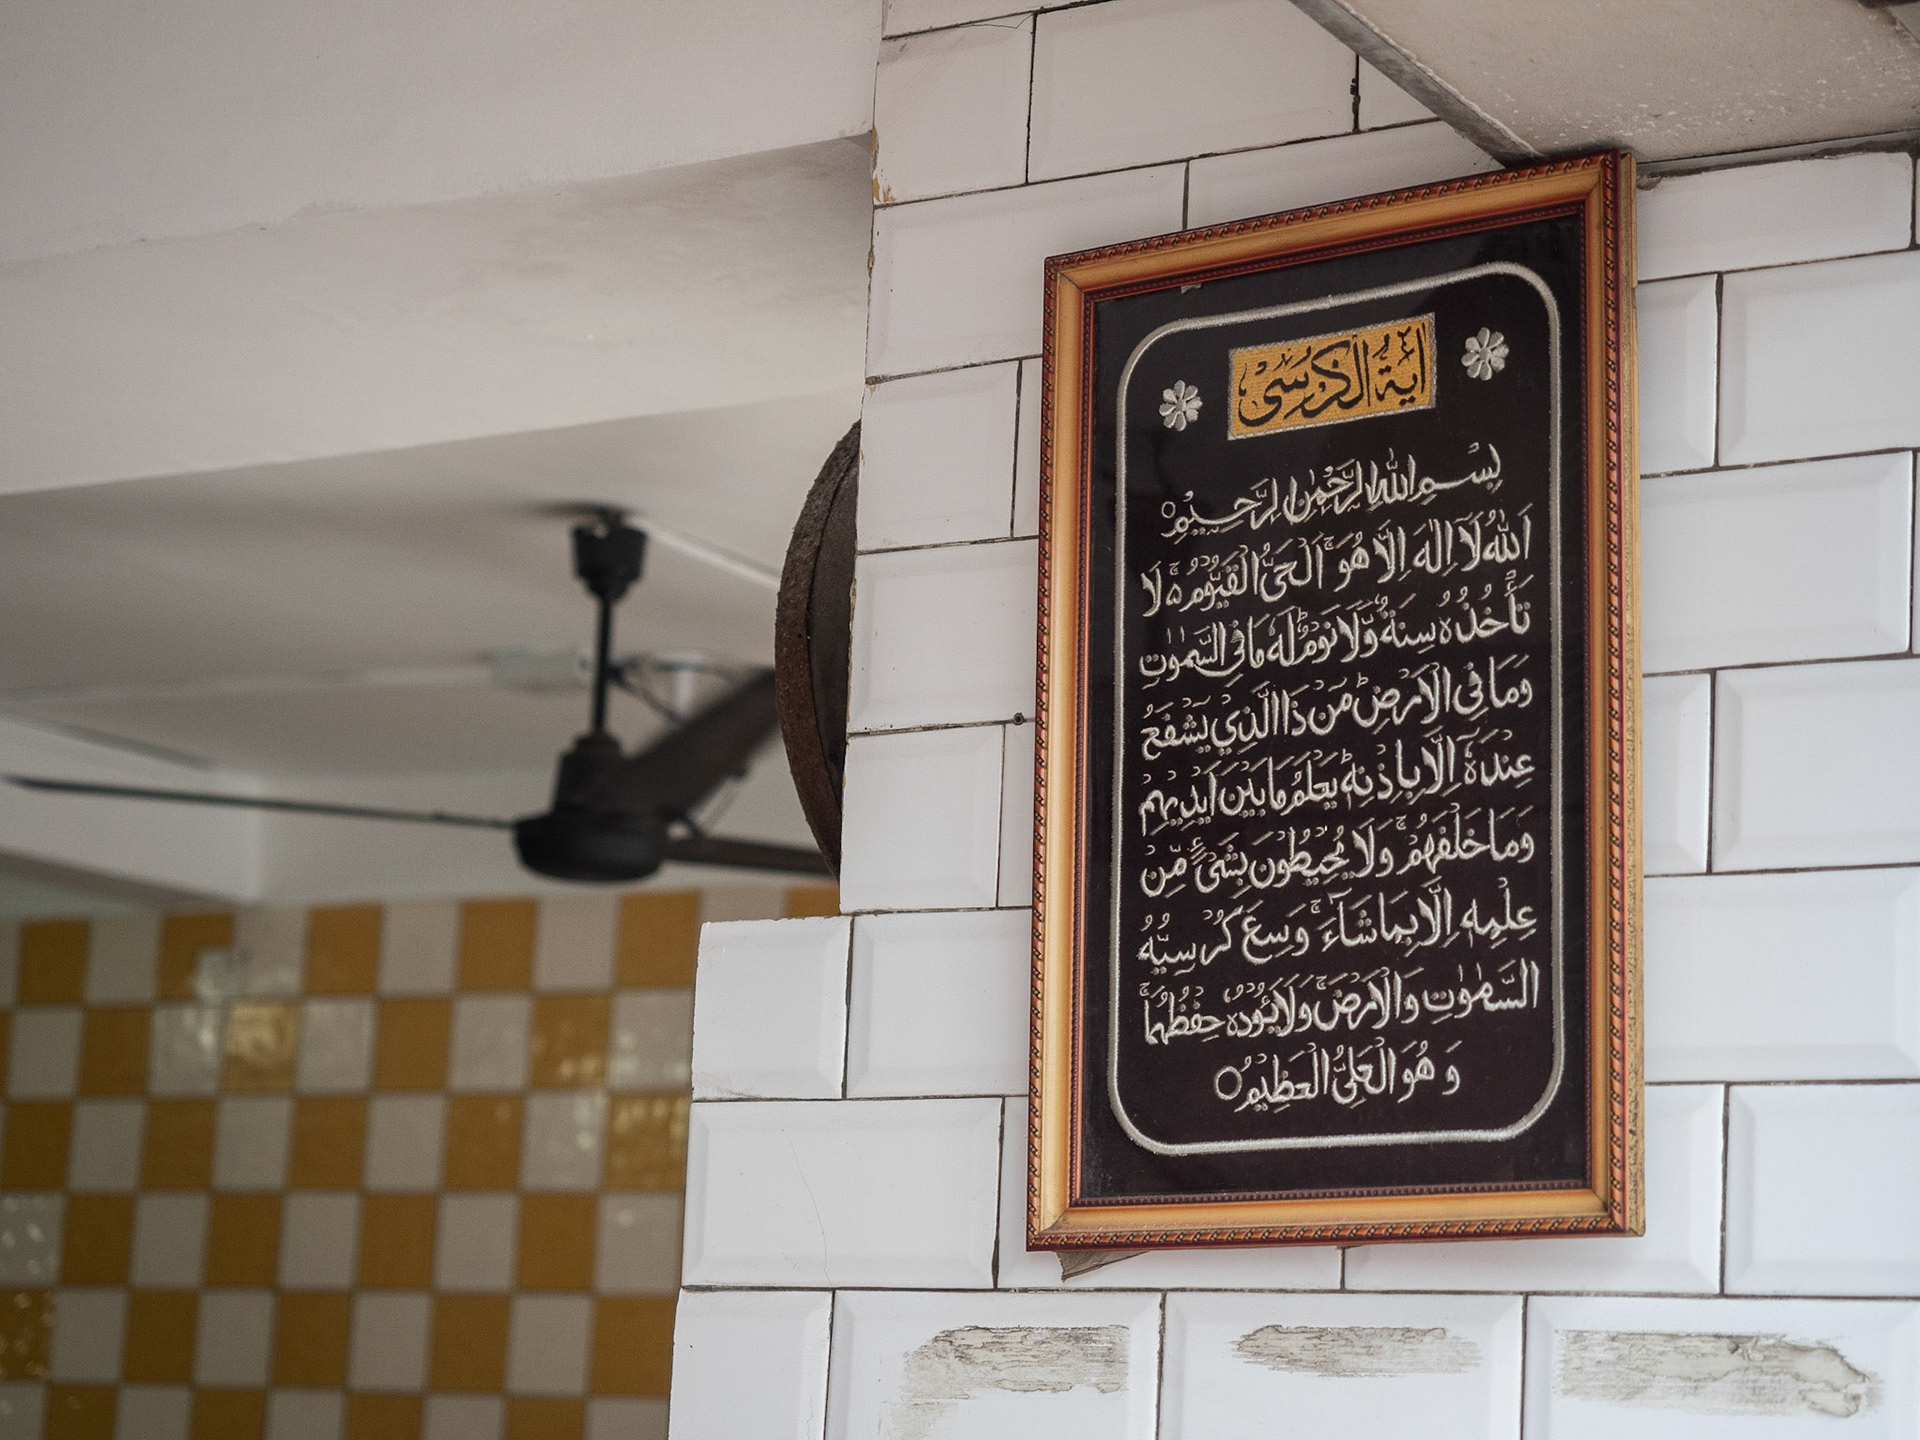 اٰيَةُ الْكُرْسِى
بِسْمِ اللّٰهِ الرَّحْمٰنِ الرَّحِيْمِ○
اَللّٰهُ لَآ اِلٰهَ اِلَّا هُوَ ۚ اَلْحَىُّ الْقَيُّوْمُ ۵ ۚ لَا
تَأْخُذُهٗ سِنَةٌ وَّلَا نَوْمٌ ؕ لَهٗ مَا فِى السَّمٰوٰتِ
وَمَا فِى الْاَرْضِ ؕ مَنْ ذَا الَّذِيْ يَشْفَعُ
عِنْدَهٗٓ اِلَّا بِاِذْنِهٖ ؕ يَعْلَمُ مَا بَيْنَ اَيْدِيْهِمْ
وَمَا خَلْفَهُمْ ۚ وَلَا يُحِيْطُوْنَ بِشَىْءٍ مِّنْ
عِلْمِهٖٓ اِلَّا بِمَا شَآءَ ۚ وَسِعَ كُرْسِيُّهُ
السَّمٰوٰتِ وَالْاَرْضَ ۚ وَلَا يَئُوْدُهٗ حِفْظُهُمَا ۚ
وَ هُوَ الْعَلِىُّ الْعَظِيْمُ○